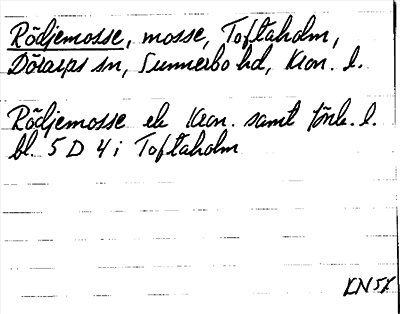 Rödjemosse, mosse, Toftaholm,
Dörarps sn, Sunnerbo hd, Kron. l.
Rödjemosse ek Kron. samt Jönk. l.
bl. 5 D 4 i Toftaholm
KN57